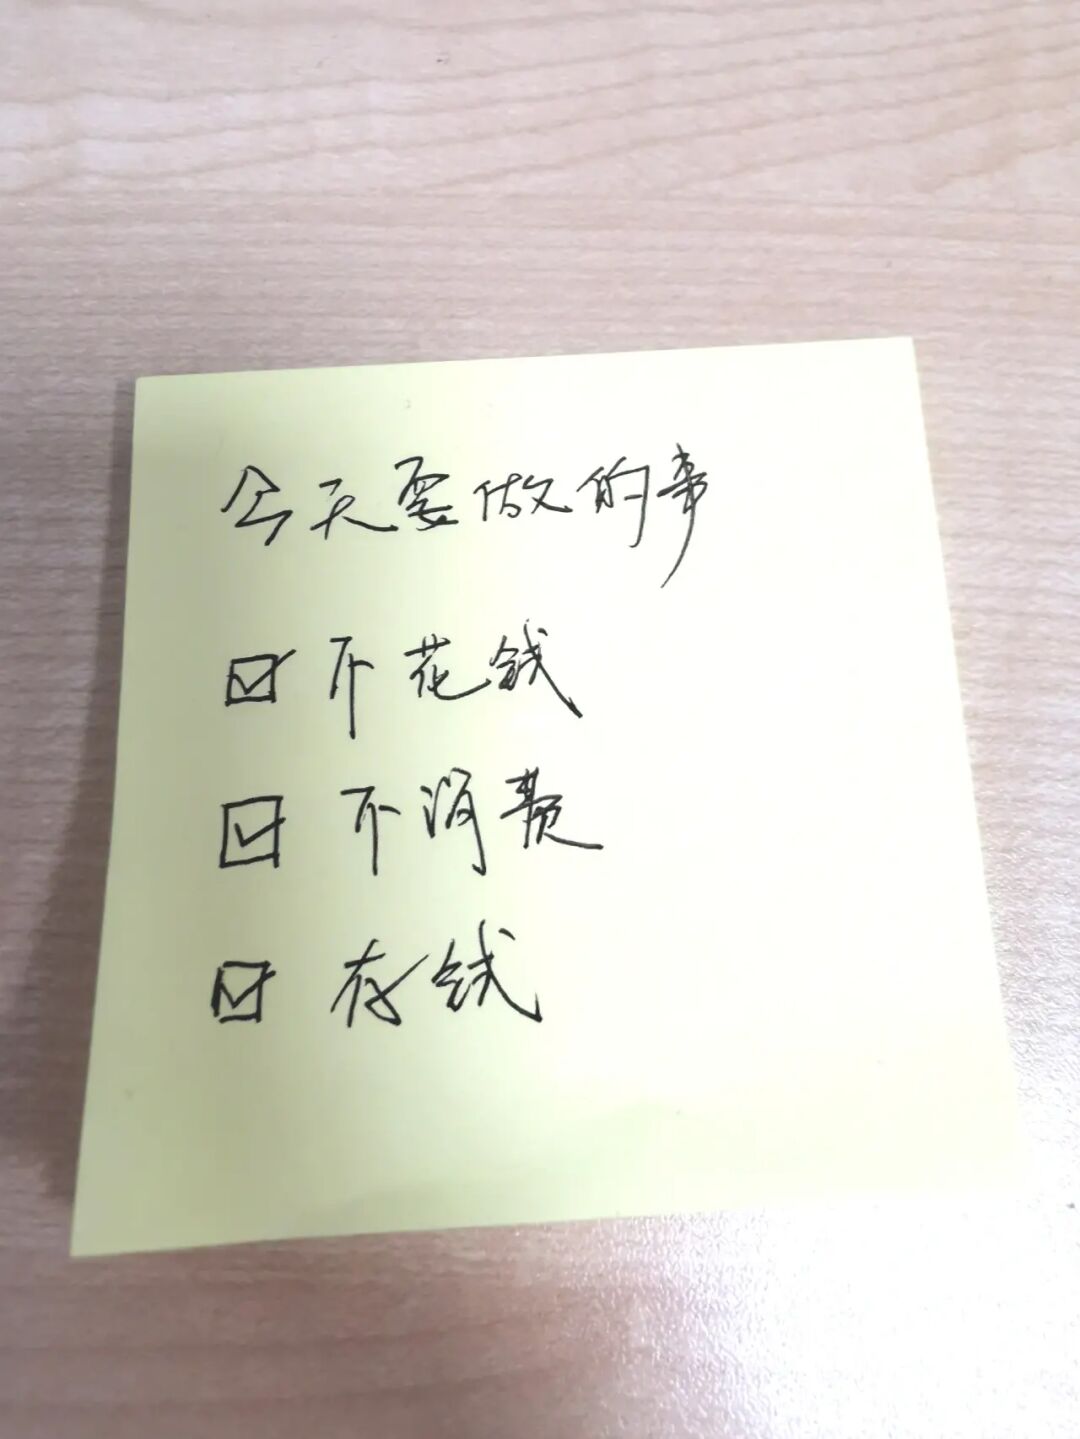 今天要做的事
☑ 不花钱
☑ 不消费
☑ 存钱